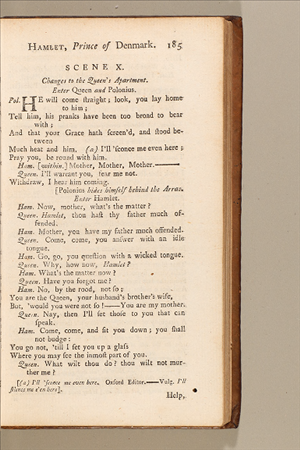 HAMLET, Prince of Denmark. 185
SCENE X.
Changes to the Queen's Apartment.
Enter Queen and Polonius.
Pol. HE will come ſtraight; look, you lay home
to him;
Tell him, his pranks have been too broad to bear
with;
And that your Grace hath ſcreen'd, and ſtood be-
tween
Much heat and him. (a) I'll 'ſconce me even here;
Pray you, be round with him.
Ham. [within.] Mother, Mother, Mother.——
Queen. I'll warrant you, fear me not.
Withdraw, I hear him coming.
[Polonius hides himſelf behind the Arras.
Enter Hamlet.
Ham. Now, mother, what's the matter?
Queen. Hamlet, thou haſt thy father much of-
fended.
Ham. Mother, you have my father much offended.
Queen. Come, come, you anſwer with an idle
tongue.
Ham. Go, go, you queſtion with a wicked tongue.
Queen. Why, how now, Hamlet?
Ham. What's the matter now?
Queen. Have you forgot me?
Ham. No, by the rood, not ſo;
You are the Queen, your husband's brother's wife,
But, 'would you were not ſo!——You are my mother.
Queen. Nay, then I'll ſet thoſe to you that can
ſpeak.
Ham. Come, come, and ſit you down; you ſhall
not budge:
You go not, 'till I ſet you up a glaſs
Where you may ſee the inmoſt part of you.
Queen. What wilt thou do? thou wilt not mur-
ther me?
[(a) I'll 'ſconce me even here. Oxford Editor.——Vulg. I'll
ſilence me e'en here].
Help,